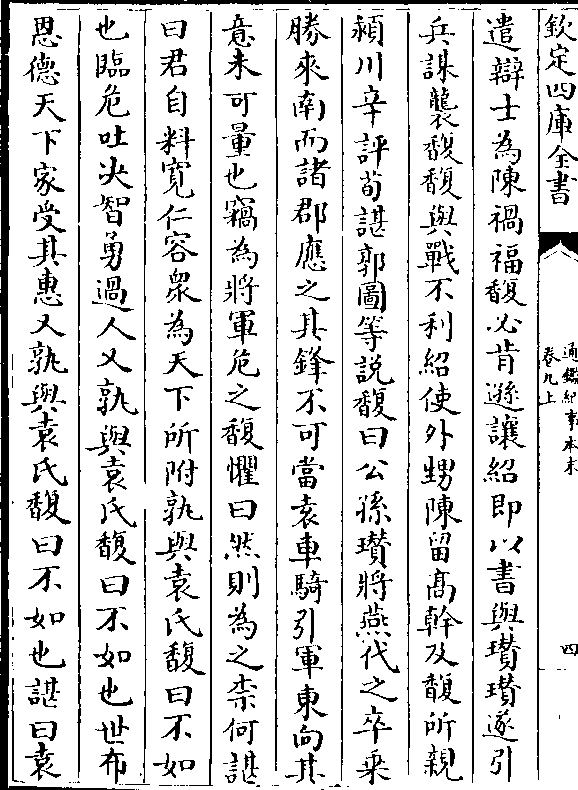 欽定四庫全書
通鑑紀事本末
卷九上
四
遣辯士為陳禍福馥必肯遜讓紹即以書與瓚瓚遂引
兵謀襲馥馥與戰不利紹使外甥陳留高幹及馥所親
潁川辛評荀諶郭圖等説馥曰公孫瓚將燕代之卒乘
勝來南而諸郡應之其鋒不可當袁車騎引軍東向其
意未可量也竊為將軍危之馥懼曰然則為之柰何諶
曰君自料寛仁容衆為天下所附孰與袁氏馥曰不如
也臨危吐决智勇過人又孰與袁氏馥曰不如也世布
恩德天下家受其惠又孰與袁氏馥曰不如也諶曰袁